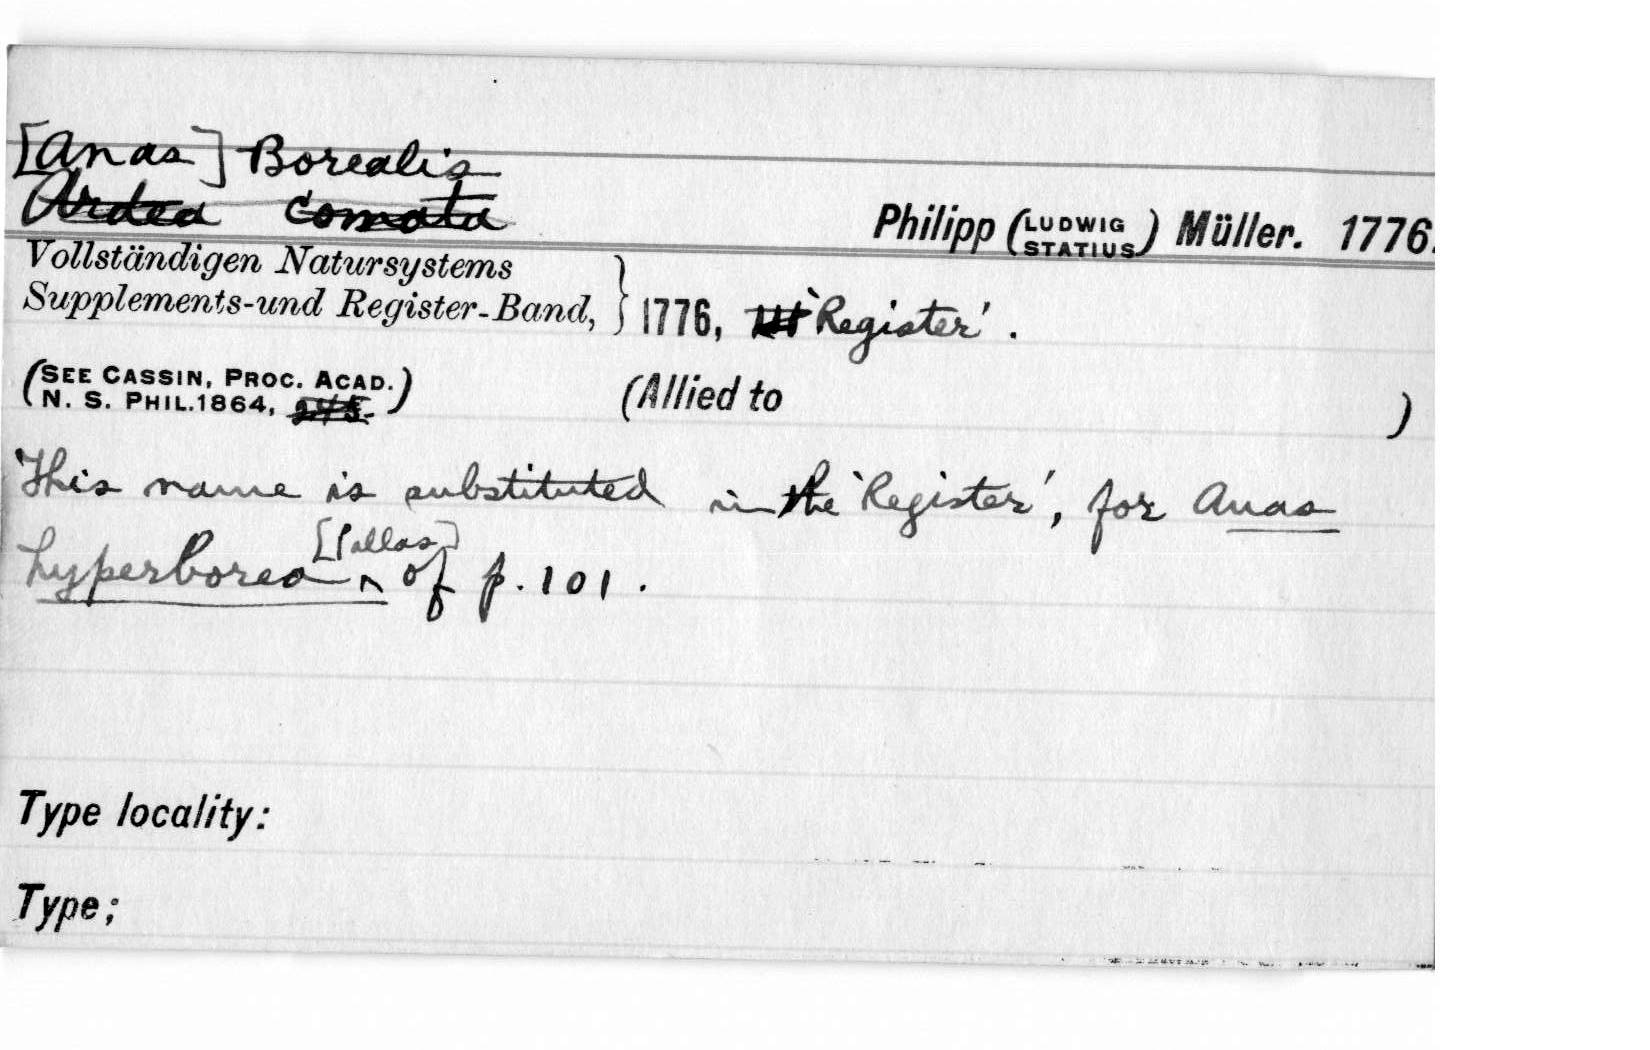 [Anas] Borealis
Ardea comata
Philipp (LUDWIG STATIUS) Müller. 1776.
Vollständigen Natursystems
Supplements-und Register-Band, } 1776, 'Register'.
(SEE CASSIN, PROC. ACAD.
N. S. PHIL.1864, 245.)
(Allied to )
This name is substituted in the 'Register', for Anas
hyperborea ^ [Pallas] of p. 101.
Type locality:
Type;